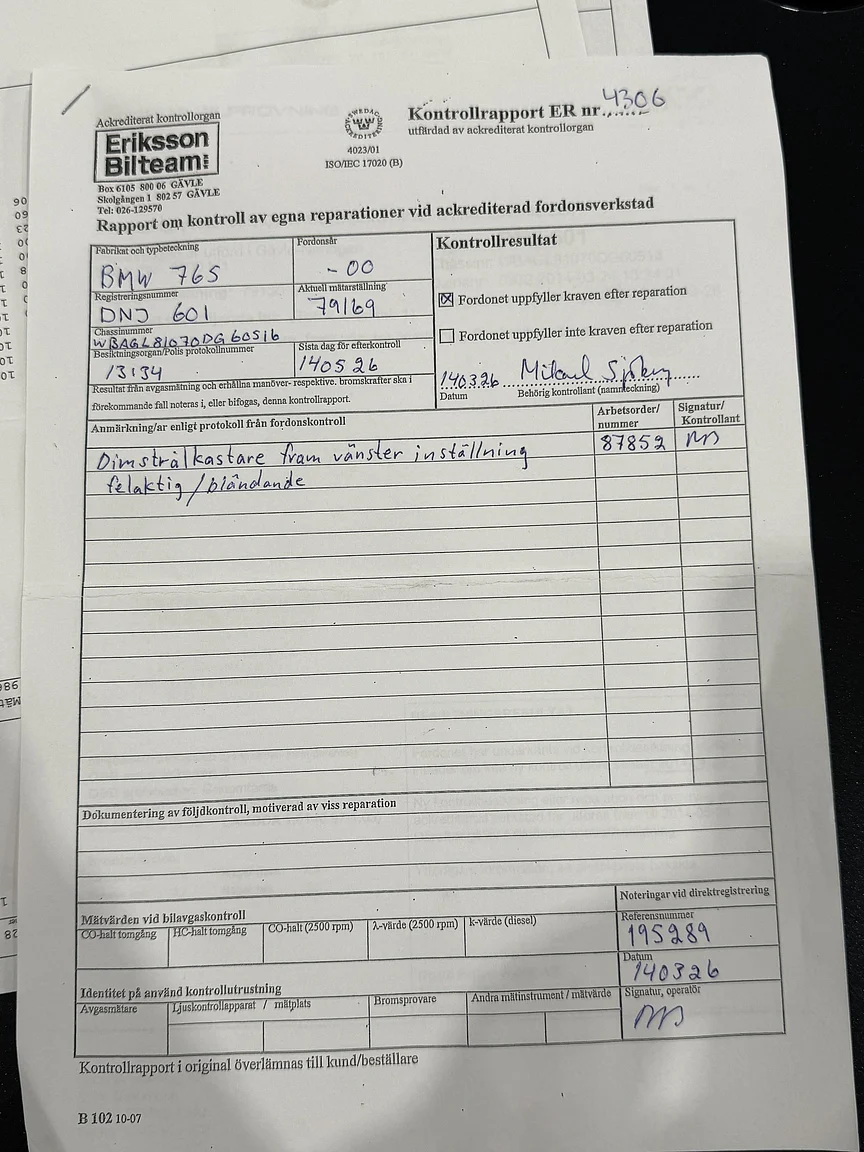 Ackrediterat kontrollorgan
Eriksson
Bilteam
Box 6105 800 06 GÄVLE
Skolgången 1 802 57 GÄVLE
Tel: 026-129570
SWEDAC
4023/01
ISO/IEC 17020 (B)
Kontrollrapport ER nr 4306
utfärdad av ackrediterat kontrollorgan
Rapport om kontroll av egna reparationer vid ackrediterad fordonsverkstad
Fabrikat och typbeteckning
BMW 765
Fordonsår
-00
Registreringsnummer
DNJ 601
Aktuell mätarställning
79169
Chassinummer
WBAGL81070DG60516
Besiktningsorgan/Polis protokollnummer
13134
Sista dag för efterkontroll
140526
Resultat från avgasmätning och erhållna manöver- respektive. bromskrafter ska i
förekommande fall noteras i, eller bifogas, denna kontrollrapport.
Kontrollresultat
Fordonet uppfyller kraven efter reparation
Fordonet uppfyller inte kraven efter reparation
140326 Mikael
Datum Behörig kontrollant (namnteckning)
Anmärkning/ar enligt protokoll från fordonskontroll
Arbetsorder/
nummer
Signatur/
Kontrollant
Dimstrålkastare fram vänster inställning 87852
felaktig/bländande
Dokumentering av följdkontroll, motiverad av viss reparation
Mätvärden vid bilavgaskontroll
CO-halt tomgång HC-halt tomgång CO-halt (2500 rpm) λ-värde (2500 rpm) k-värde (diesel)
Noteringar vid direktregistrering
Referensnummer
195289
Datum
140326
Signatur, operatör
Identitet på använd kontrollutrustning
Avgasmätare Ljuskontrollapparat / mätplats Bromsprovare Andra mätinstrument / mätvärde
Kontrollrapport i original överlämnas till kund/beställare
B 102 10-07